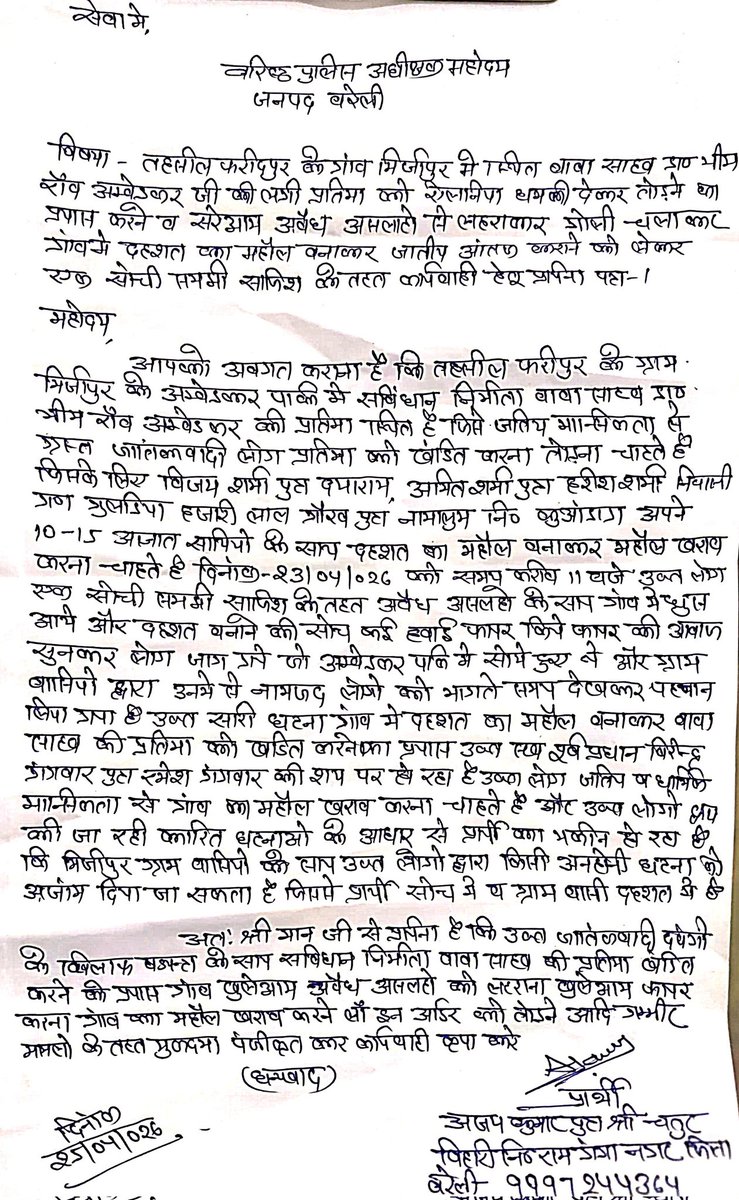 सेवा मे,
वरिष्ठ पुलिस अधीक्षक महोदय
जनपद बरेली
विषय - तहसील फरीदपुर के गांव मिर्जापुर मे स्थित बाबा साहब डा० भीम
राँव अम्बेडकर जी की लगी प्रतिमा को ऐलानिया धमकी देकर तोड़ने का
प्रयास करने व सरेआम अवैध असलहो से लहराकर गोली चलाकर
गांव मे दहशत का महौल बनाकर जातीय आंतक कराने को लेकर
एक सोची समझी साजिश के तहत कार्यवाही हेतु प्रार्थना पत्र-।
महोदय,
आपको अवगत कराना है कि तहसील फरीपुर के ग्राम
मिर्जापुर के अम्बेडकर पार्क मे सविंधान निर्माता बाबा साहब डा०
भीम राँव अम्बेडकर की प्रतिमा स्थित है जिसे जतिय मानसिकता से
ग्रस्त आतंकवादी लोग प्रतिमा को खंडित करना तोड़ना चाहते है
जिसके लिए विजय शर्मा पुत्र दयाराम, अमित शर्मा पुत्र हरीश शर्मा निवासी
गण गुलडिया हजारी लाल गौरव पुत्र नामालुम नि० कुआँडांडा अपने
10-15 अज्ञात साथियो के साथ दहशत का महौल बनाकर महौल खराब
करना चाहते है दिनांक-23/04/026 को समय करीब 11 बजे उक्त लोग
एक सोची समझी साजिश के तहत अवैध असलहो के साथ गांव मे घुस
आये और दहशत बनाने की सोच कई हवाई फायर किये फायर की आवाज
सुनकर लोग जाग गये जो अम्बेडकर पार्क मे सोये हुए थे और ग्राम
वासियो द्वारा उनमे से नामजद लोगो को भागते समय देखकर पहचान
लिया गया है उक्त सारी घटना गांव मे दहशत का महौल बनाकर बाबा
साहब की प्रतिमा को खंडित करने का प्रयास उक्त सब पूर्व प्रधान विरेन्द्र
गंगवार पुत्र रमेश गंगवार की शय पर हो रहा है उक्त लोग जतिय व धार्मिक
मानसिकता से गांव का महौल खराब करना चाहते है और उक्त लोगो द्वारा
की जा रही कारित घटनाओ के आधार से प्रार्थी का यकीन हो रहा है
कि मिर्जापुर ग्राम वासियो के साथ उक्त लोगो द्वारा किसी अनहोनी घटना को
अजांम दिया जा सकता है जिससे प्रार्थी सोच मे व ग्राम वासी दहशत मे है
अतः श्री मान जी से प्रार्थना है कि उक्त आतंकवादी दबंगो
के खिलाफ के साथ सविधान निर्माता बाबा साहब की प्रतिमा खंडित
करने के प्रयास गांव खुलेआम अवैध असलहो को लहराना खुलेआम फायर
करना गांव का महौल खराब करने लाँ इन आर्डर को तोडने आदि गम्भीर
मामलो के तहत मुकदमा पंजीकृत कर कार्यवाही कृपा करे
(धन्यवाद)
प्रार्थी
दिनांक
25/04/026
अजय कुमार पुत्र श्री चतुर
विहारी नि० राम गंगा नगर जिला
बरेली- 9997244364